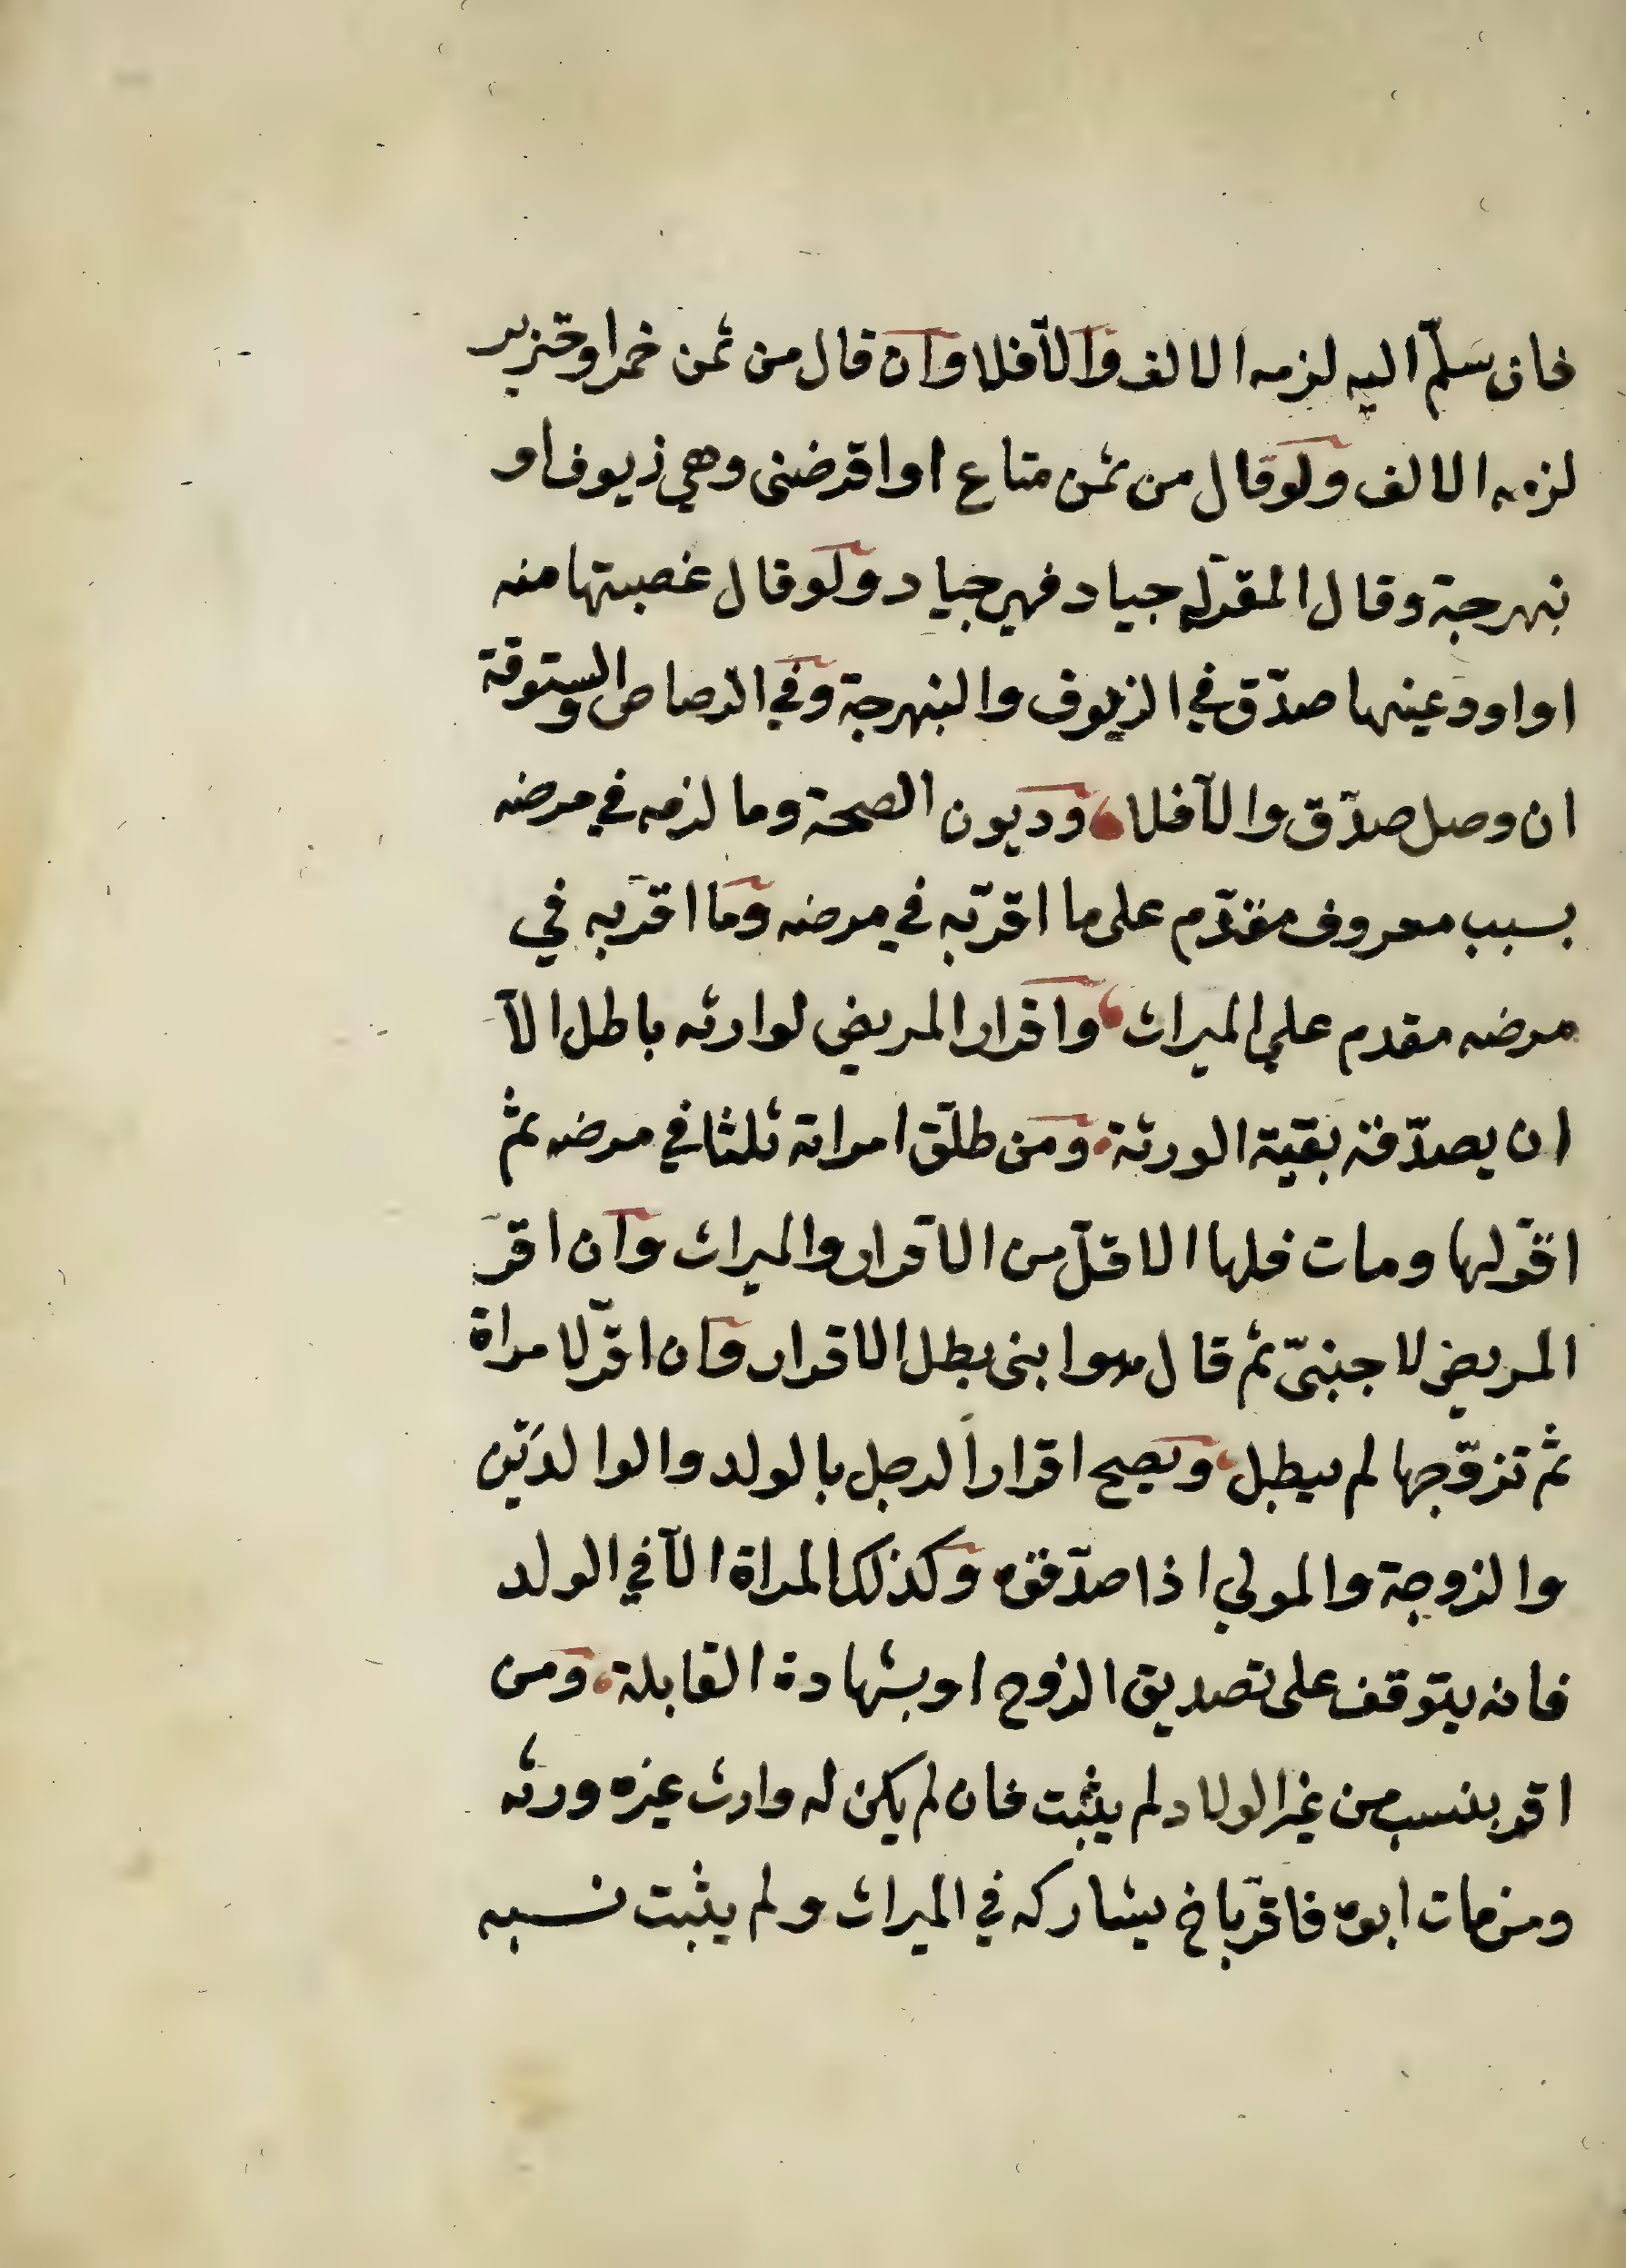 فان سَلّم اليه لزمه الالف والّا فلا وان قال من ثمن خمر او خنزير
لزمه الالف ولو قال من ثمن متاع او اقرضنى وهي زيوف او
نبهرجة وقال المقرّ له جياد فهي جياد ولو قال غصبتها منه
او اودعنيها صدّق في الزيوف والنبهرجة وفي الرصاص والستوقة
ان وصل صدّق والّا فلا وديون الصحة وما لزمه في مرضه
بسبب معروف مقدّم على ما اقرّ به في مرضه وما اقرّ به في
مرضه مقدم علي الميراث واقرار المريض لوارثه باطل الّا
ان يصدّقه بقية الورثة ومن طلّق امراته ثلثا في مرضه ثم
اقرّ لها ومات فلها الاقلّ من الاقرار والميراث وان اقرّ
المريض لاجنبىّ ثم قال هو ابنى بطل الاقرار وان اقرّ لامراة
ثم تزوّجها لم يبطل ويصح اقرار الرجل بالولد والوالدَين
والزوجة والمولي اذا صدّقوه وكذلك المراة الّا في الولد
فانه يتوقف على تصديق الزوج او بشهادة القابلة ومن
اقر بنسب من غير الولاد لم يثبت فان لم يكن له وارث غيره ورثه
ومن مات ابوه فاقرّ باخ يشاركه في الميراث ولم يثبت نسبه